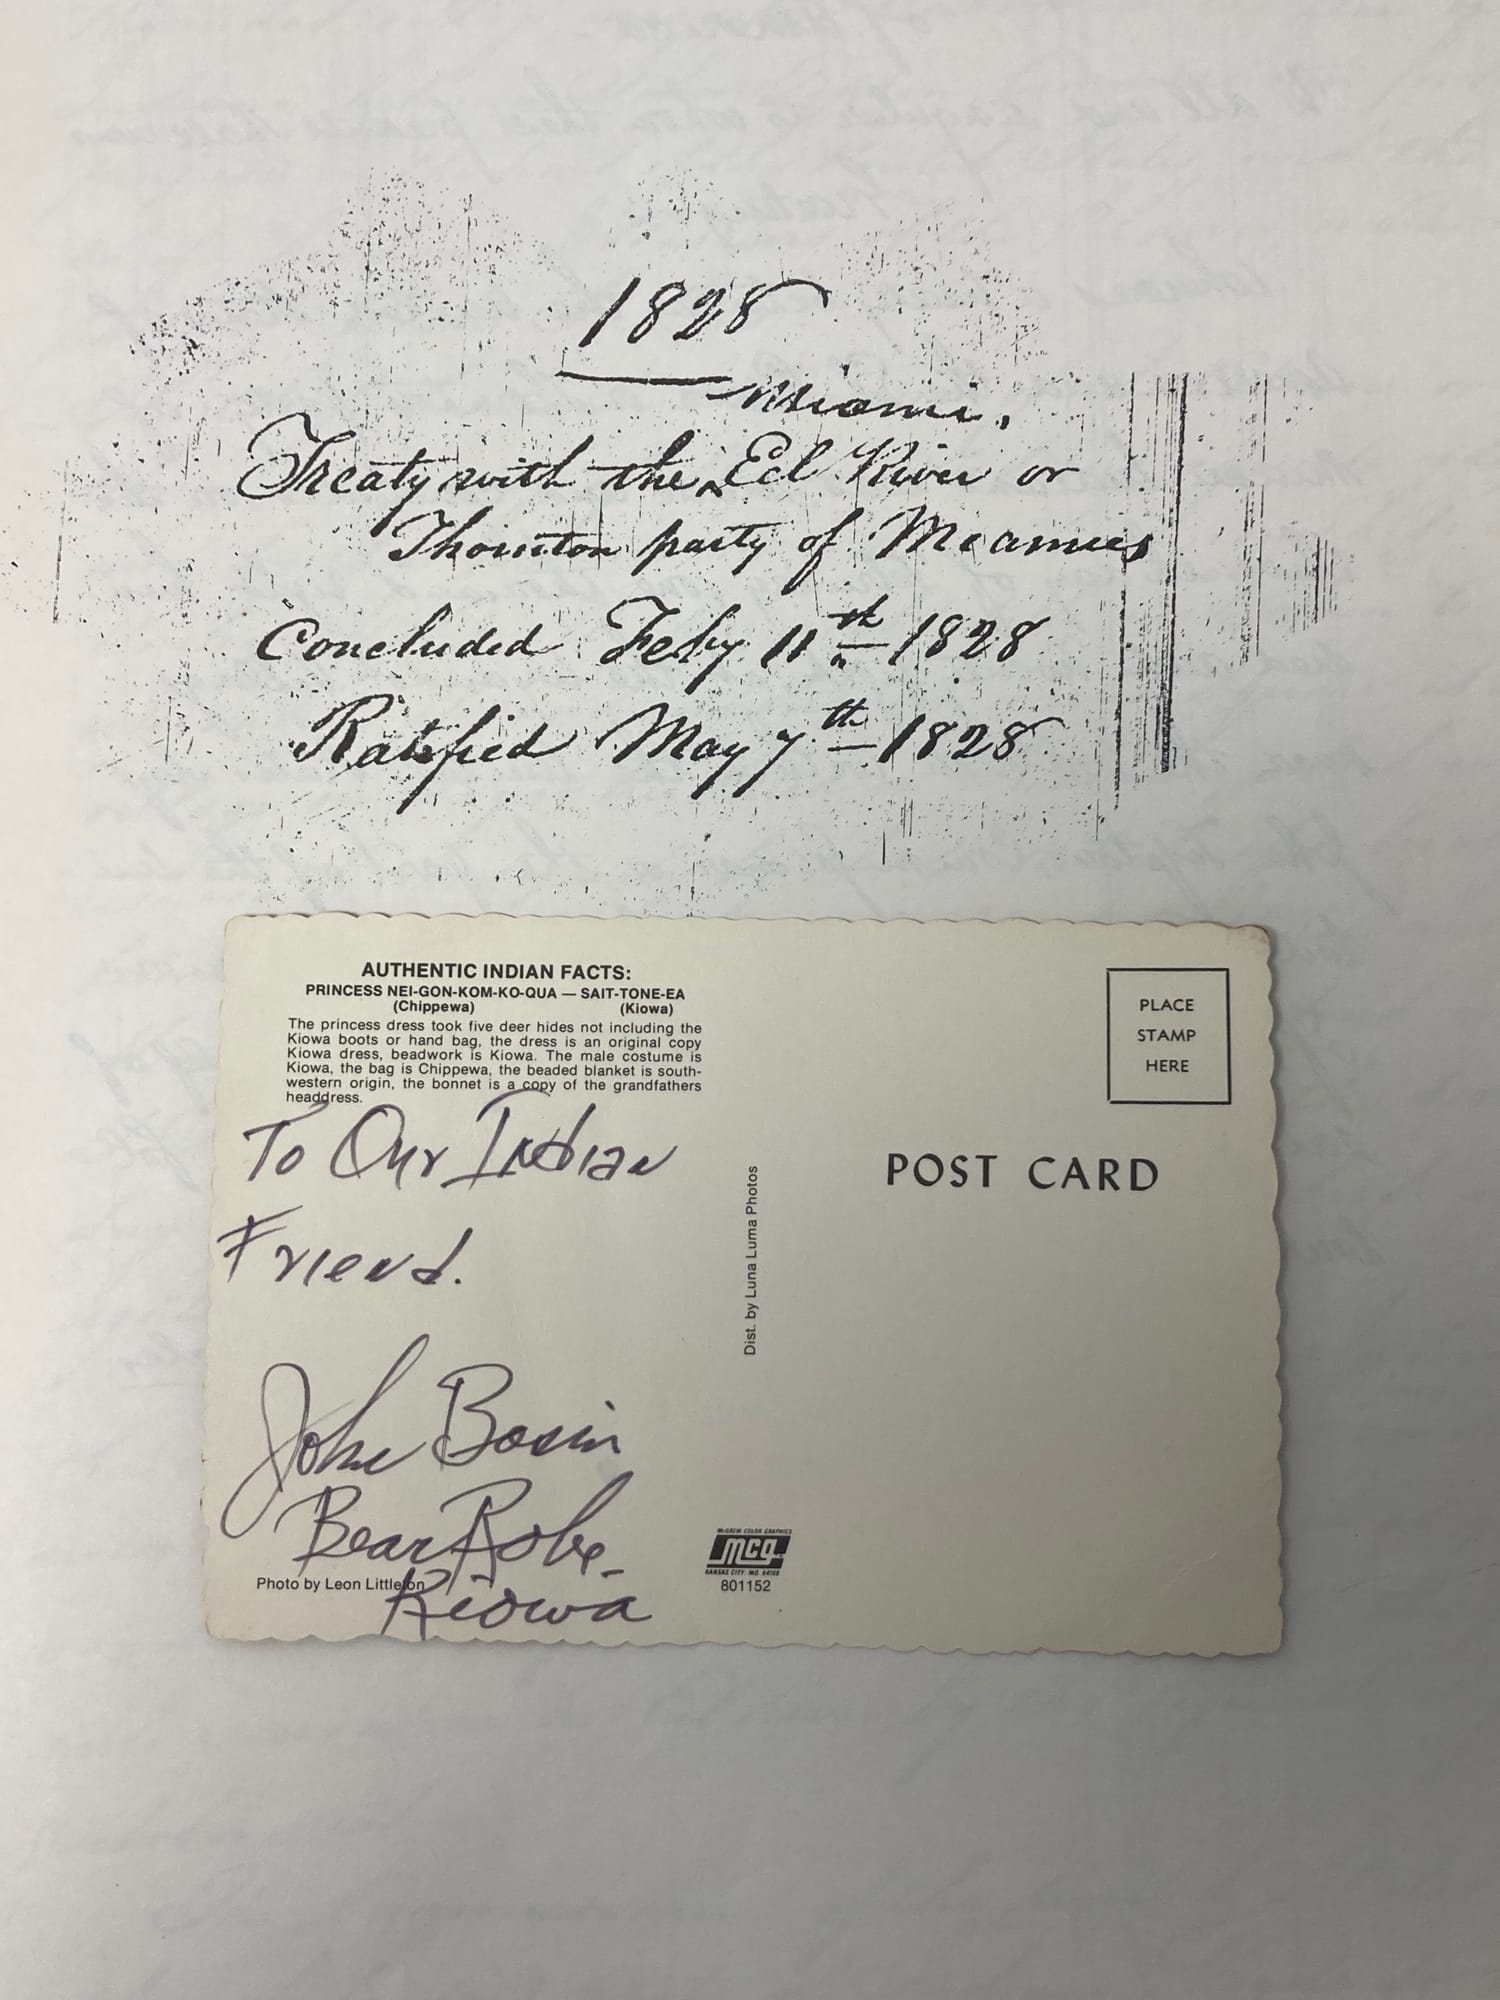 1828
Miami,
Treaty with the ‸ Eel River or
Thornton party of Miamies
Concluded Feby 11th 1828
Ratified May 7th 1828
AUTHENTIC INDIAN FACTS:
PRINCESS NEI-GON-KOM-KO-QUA — SAIT-TONE-EA
(Chippewa) (Kiowa)
The princess dress took five deer hides not including the
Kiowa boots or hand bag, the dress is an original copy
Kiowa dress, beadwork is Kiowa. The male costume is
Kiowa, the bag is Chippewa, the beaded blanket is south-
western origin, the bonnet is a copy of the grandfathers
headdress.
To Our Indian
Friend.
John Bosin
Bear Robe-
Kiowa
Photo by Leon Littleton
Dist. by Luna Luma Photos
McGREW COLOR GRAPHICS
mcg
KANSAS CITY, MO. 64108
801152
PLACE
STAMP
HERE
POST CARD